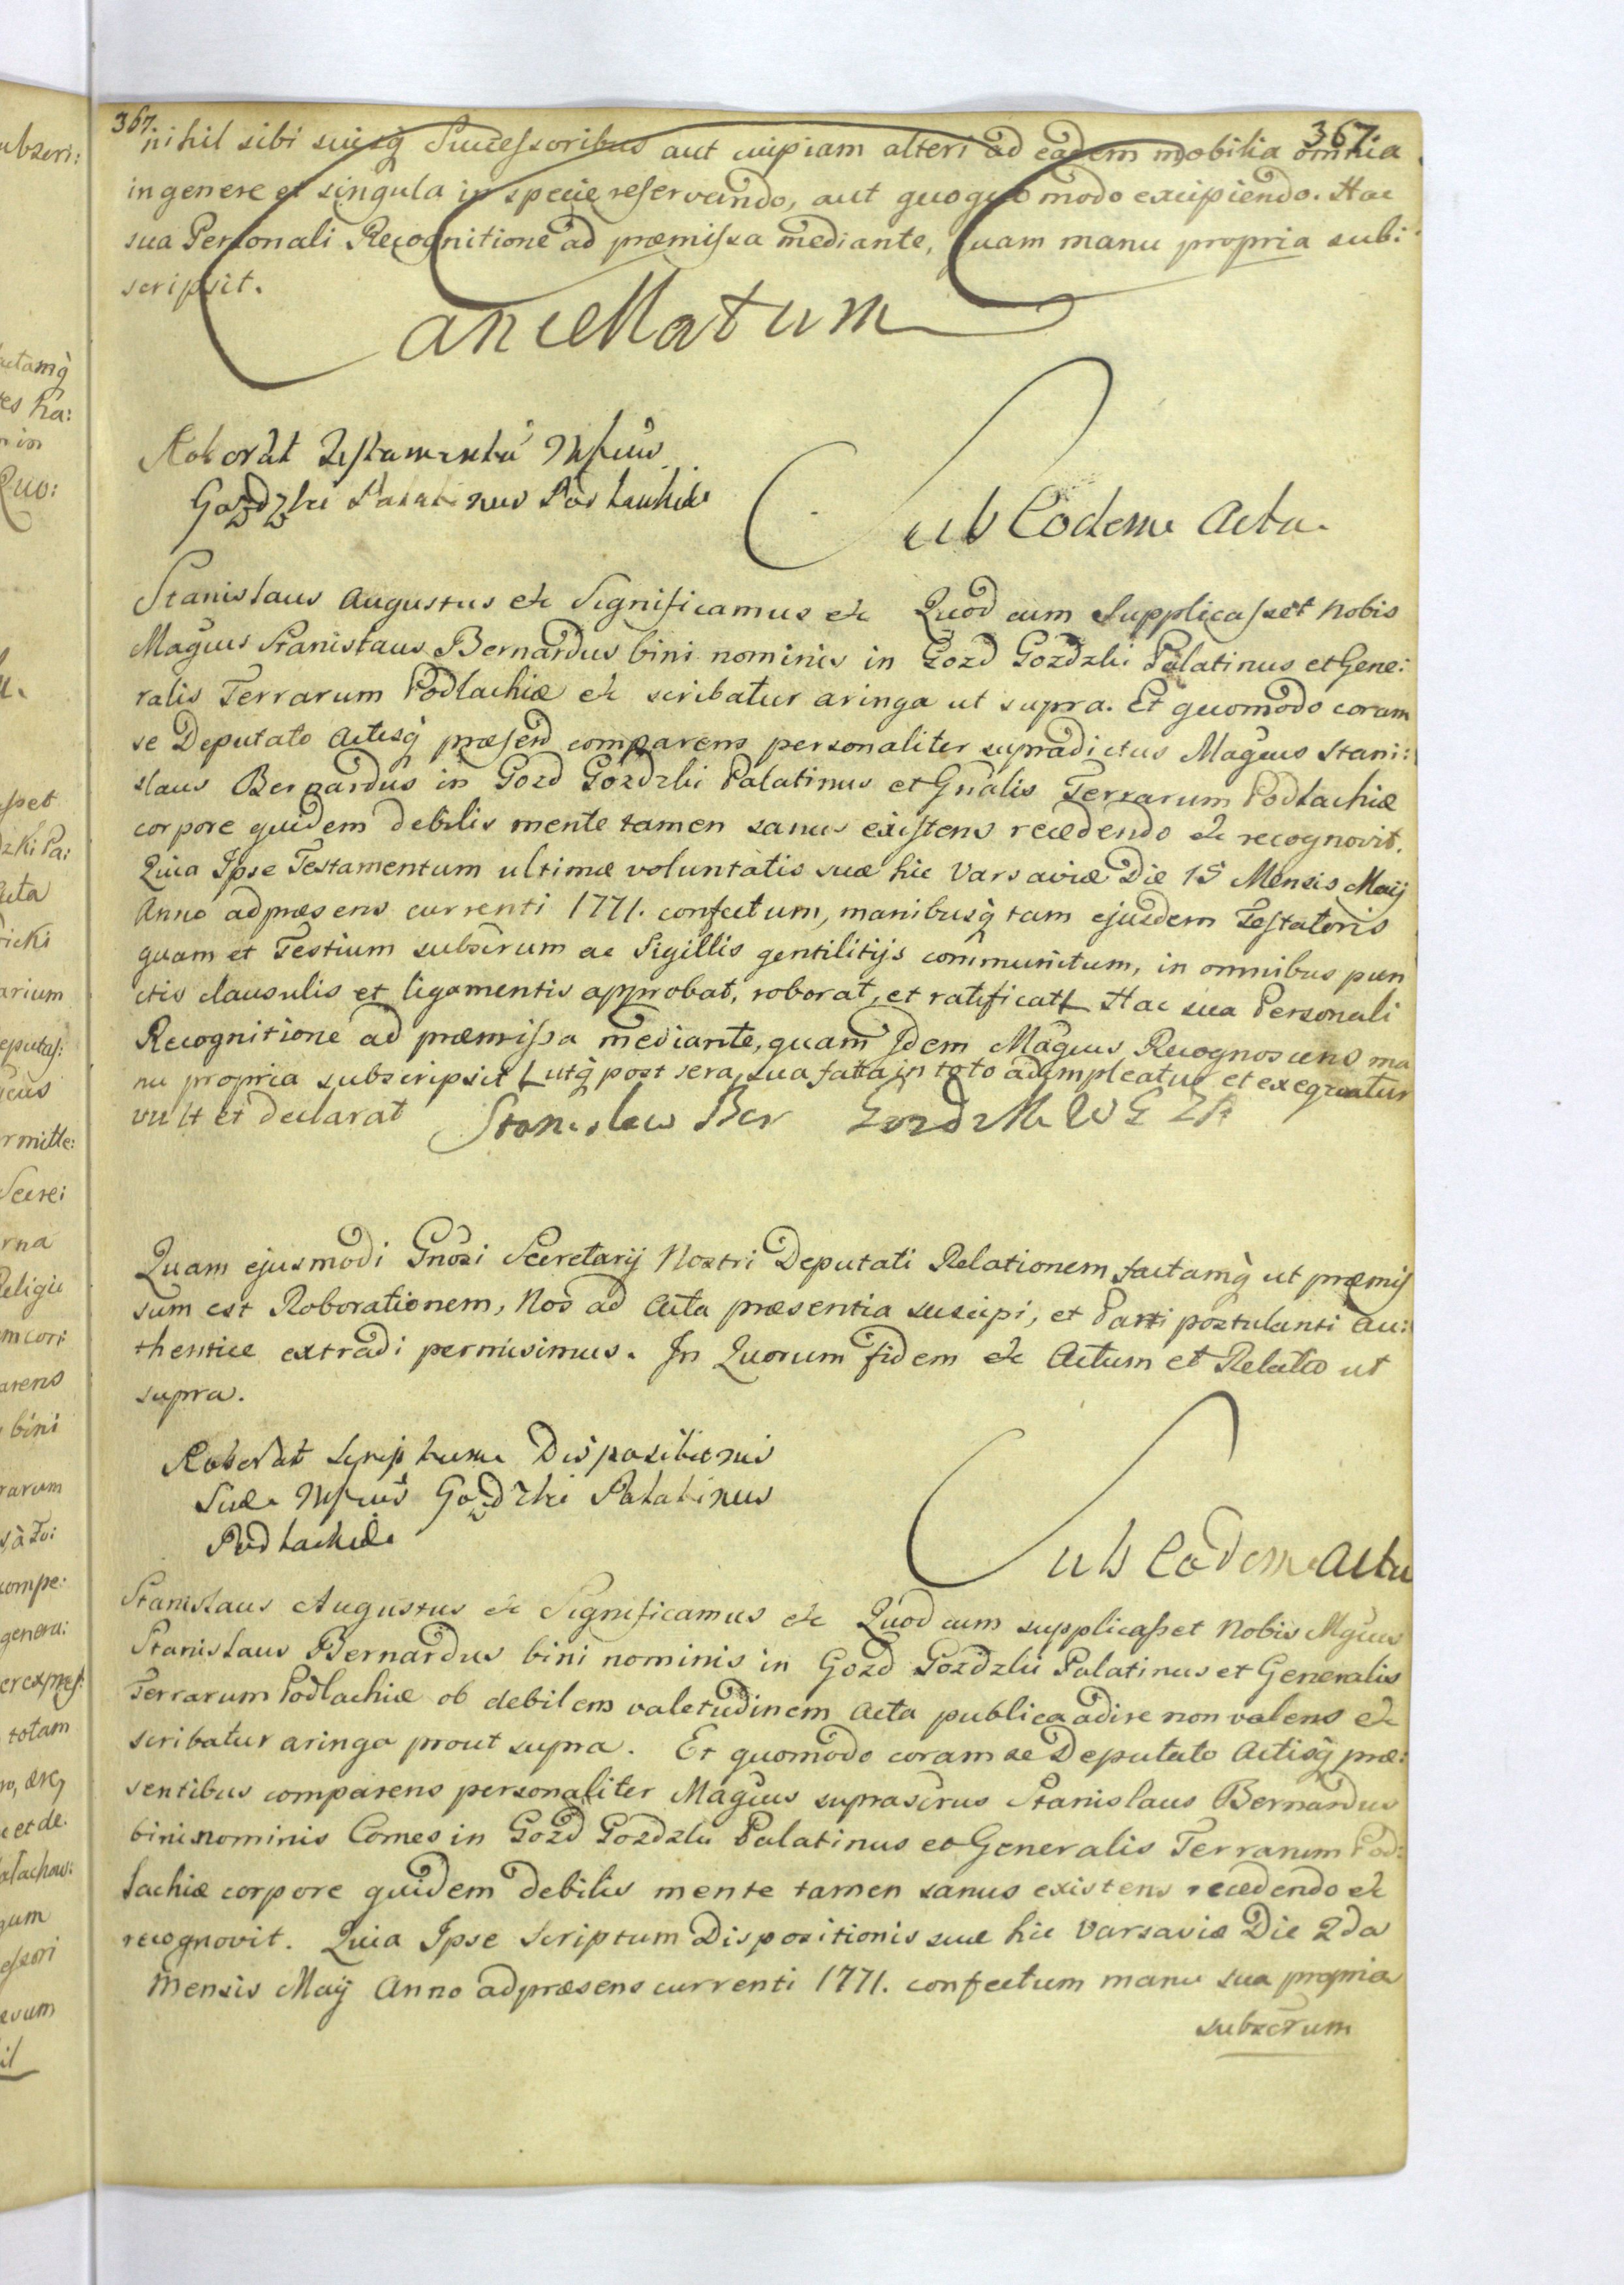 367. 367.
nihil sibi suisq̃ Successoribus aut cuipiam alteri ad eadem mobilia omnia
in genere et singula in specie reservando, aut quoquo modo excipiendo. Hac
sua Personali Recognitione ad præmissa mediante, Quam manu propria sub:
scripsit.
Cancellatum
Roborat Testamentũ Mſicus
Gozdzki Palatinus Podlachiæ
Sub Eodem Actu
Stanislaus Augustus etc Significamus etc Quod cum Supplicasset Nobis
Magcus Stanislaus Bernardus bini nominis in Gozd Gozdzki Palatinus et Gene:
ralis Terrarum Podlachiæ etc scribatur aringa ut supra. Et quomodo coram
se Deputato Actisq̃ præsend comparens personaliter supradictus Magcus Stani:
slaus Bernardus in Gozd Gozdzki Palatinus et Gñalis Terrarum Podlachiæ
corpore quidem debilis mente tamen sanus existens recedendo etc recognovit.
Quia Ipse Testamentum ultimæ voluntatis suæ hic Varsaviæ Die 15 Mensis Maij
Anno ad præsens currenti 1771. confectum, manibusq̃ tam ejusdem Testatoris
quam et Testium subscrum ac Sigillis gentilitijs communitum, in omnibus pun
ctis clausulis et ligamentis approbat, roborat, et ratificat Hac sua Personali
Recognitione ad præmissa mediante, quam Idem Magcus Recognoscens ma
nu propria subscripsit utq̃ post sera, sua fata in toto adimpleatur et exequatur
vult et declarat Stanislaw Ber Gozdzki W G ZP
Quam ejusmodi Gnosi Secretarij Nostri Deputati Relationem factamq̃ ut præmis
sum est Roborationem, Nos ad Acta præsentia suscipi, et Parti postulanti Au:
thentice extradi permisimus. In Quorum fidem etc Actum et Relatio ut
supra.
Roborat Scriptum Dispositionis
Suæ Mſicus Gozdzki Palatinus
Podlachiæ
Sub Eodem Actu
Stanislaus Augustus etc Significamus etc Quod cum supplicasset Nobis Mgcus
Stanislaus Bernardus bini nominis in Gozd Gozdzki Palatinus et Generalis
Terrarum Podlachiæ ob debilem valetudinem Acta publica adire non valens etc
scribatur aringa prout supra. Et quomodo coram se Deputato Actisq̃ præ:
sentibus comparens personaliter Magcus suprascrus Stanislaus Bernardus
bini nominis Comes in Gozd Gozdzki Palatinus et Generalis Terrarum Pod:
lachiæ corpore quidem debilis mente tamen sanus existens recedendo etc
recognovit. Quia Ipse Scriptum Dispositionis suæ hic Varsaviæ Die 2da
Mensis Maij Anno ad præsens currenti 1771. confectum manu sua propria
subscrum